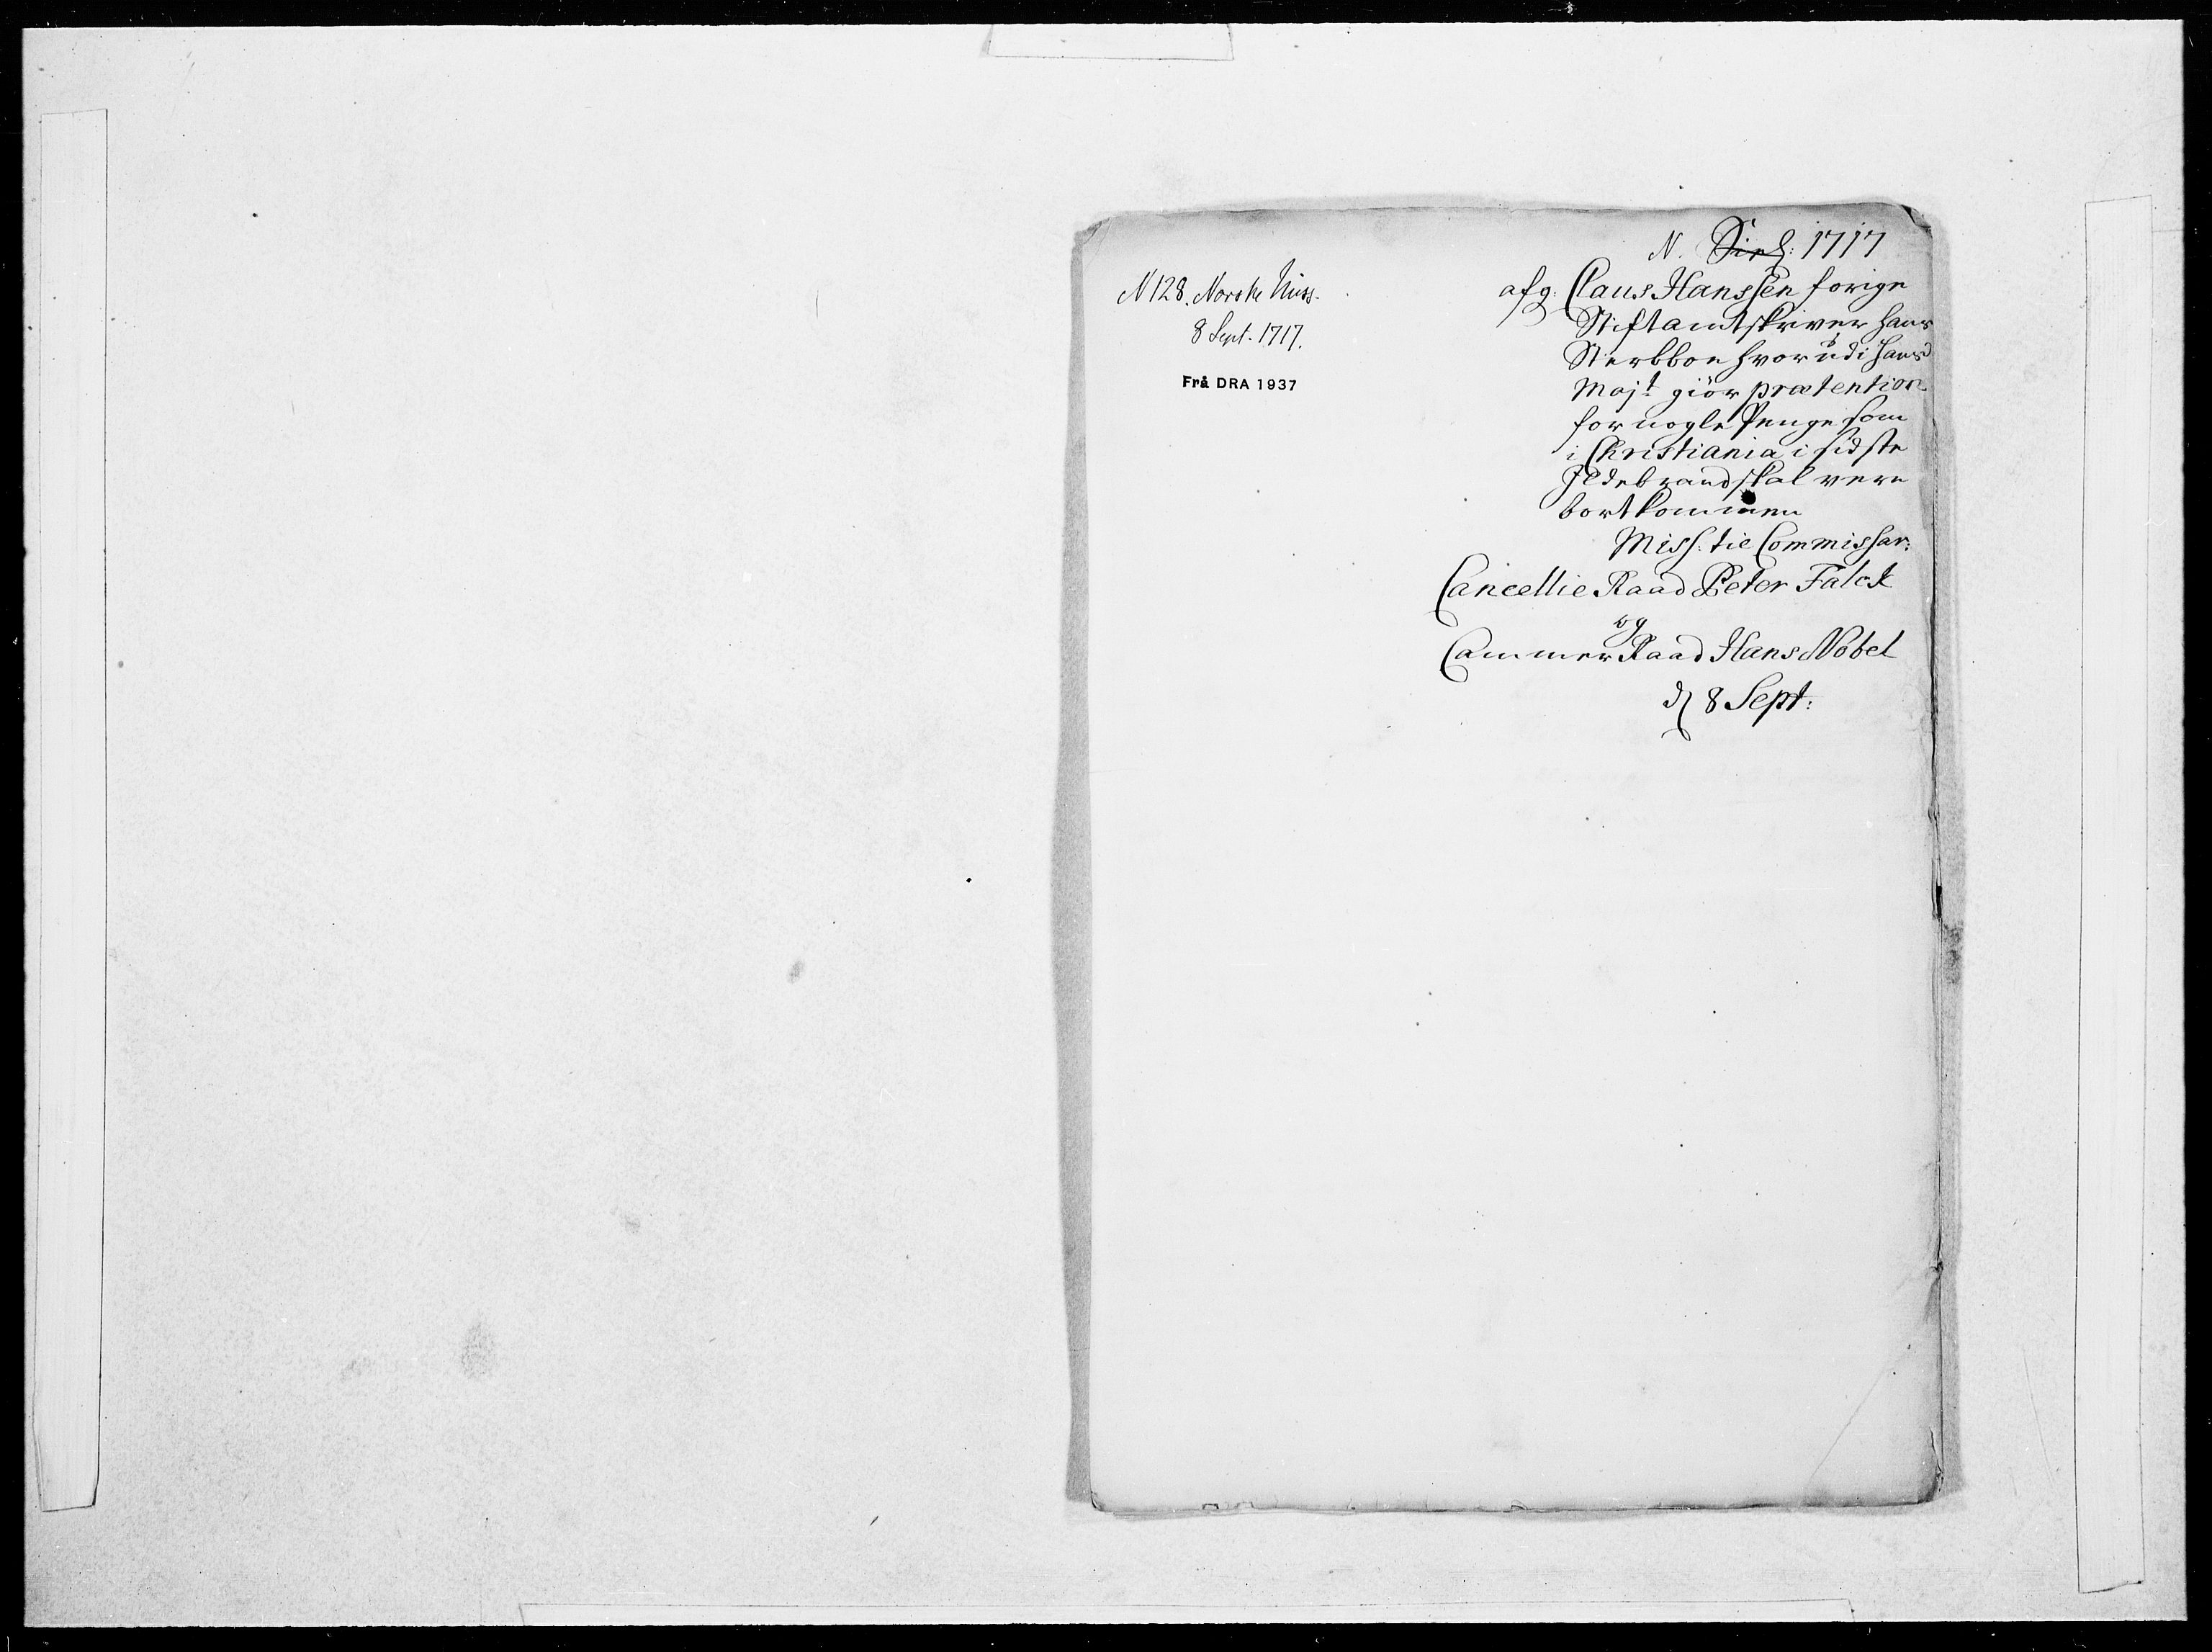 N 128. Norske Miss.
8 Sept. 1717.
Frå DRA 1937
N. 1717
afg: Claus Hanssen forige
Stiftamtskriver hans
Sterbboe hvorudi hans
Majt giör prætention
for nogle Penge som
i Christiania i sidste
Ildebrand skal vere
bortkommen
Miss: til Commissar:
Cancellie Raad Peter Falck
og
Cammer Raad Hans Nobel
d 8 Sept: